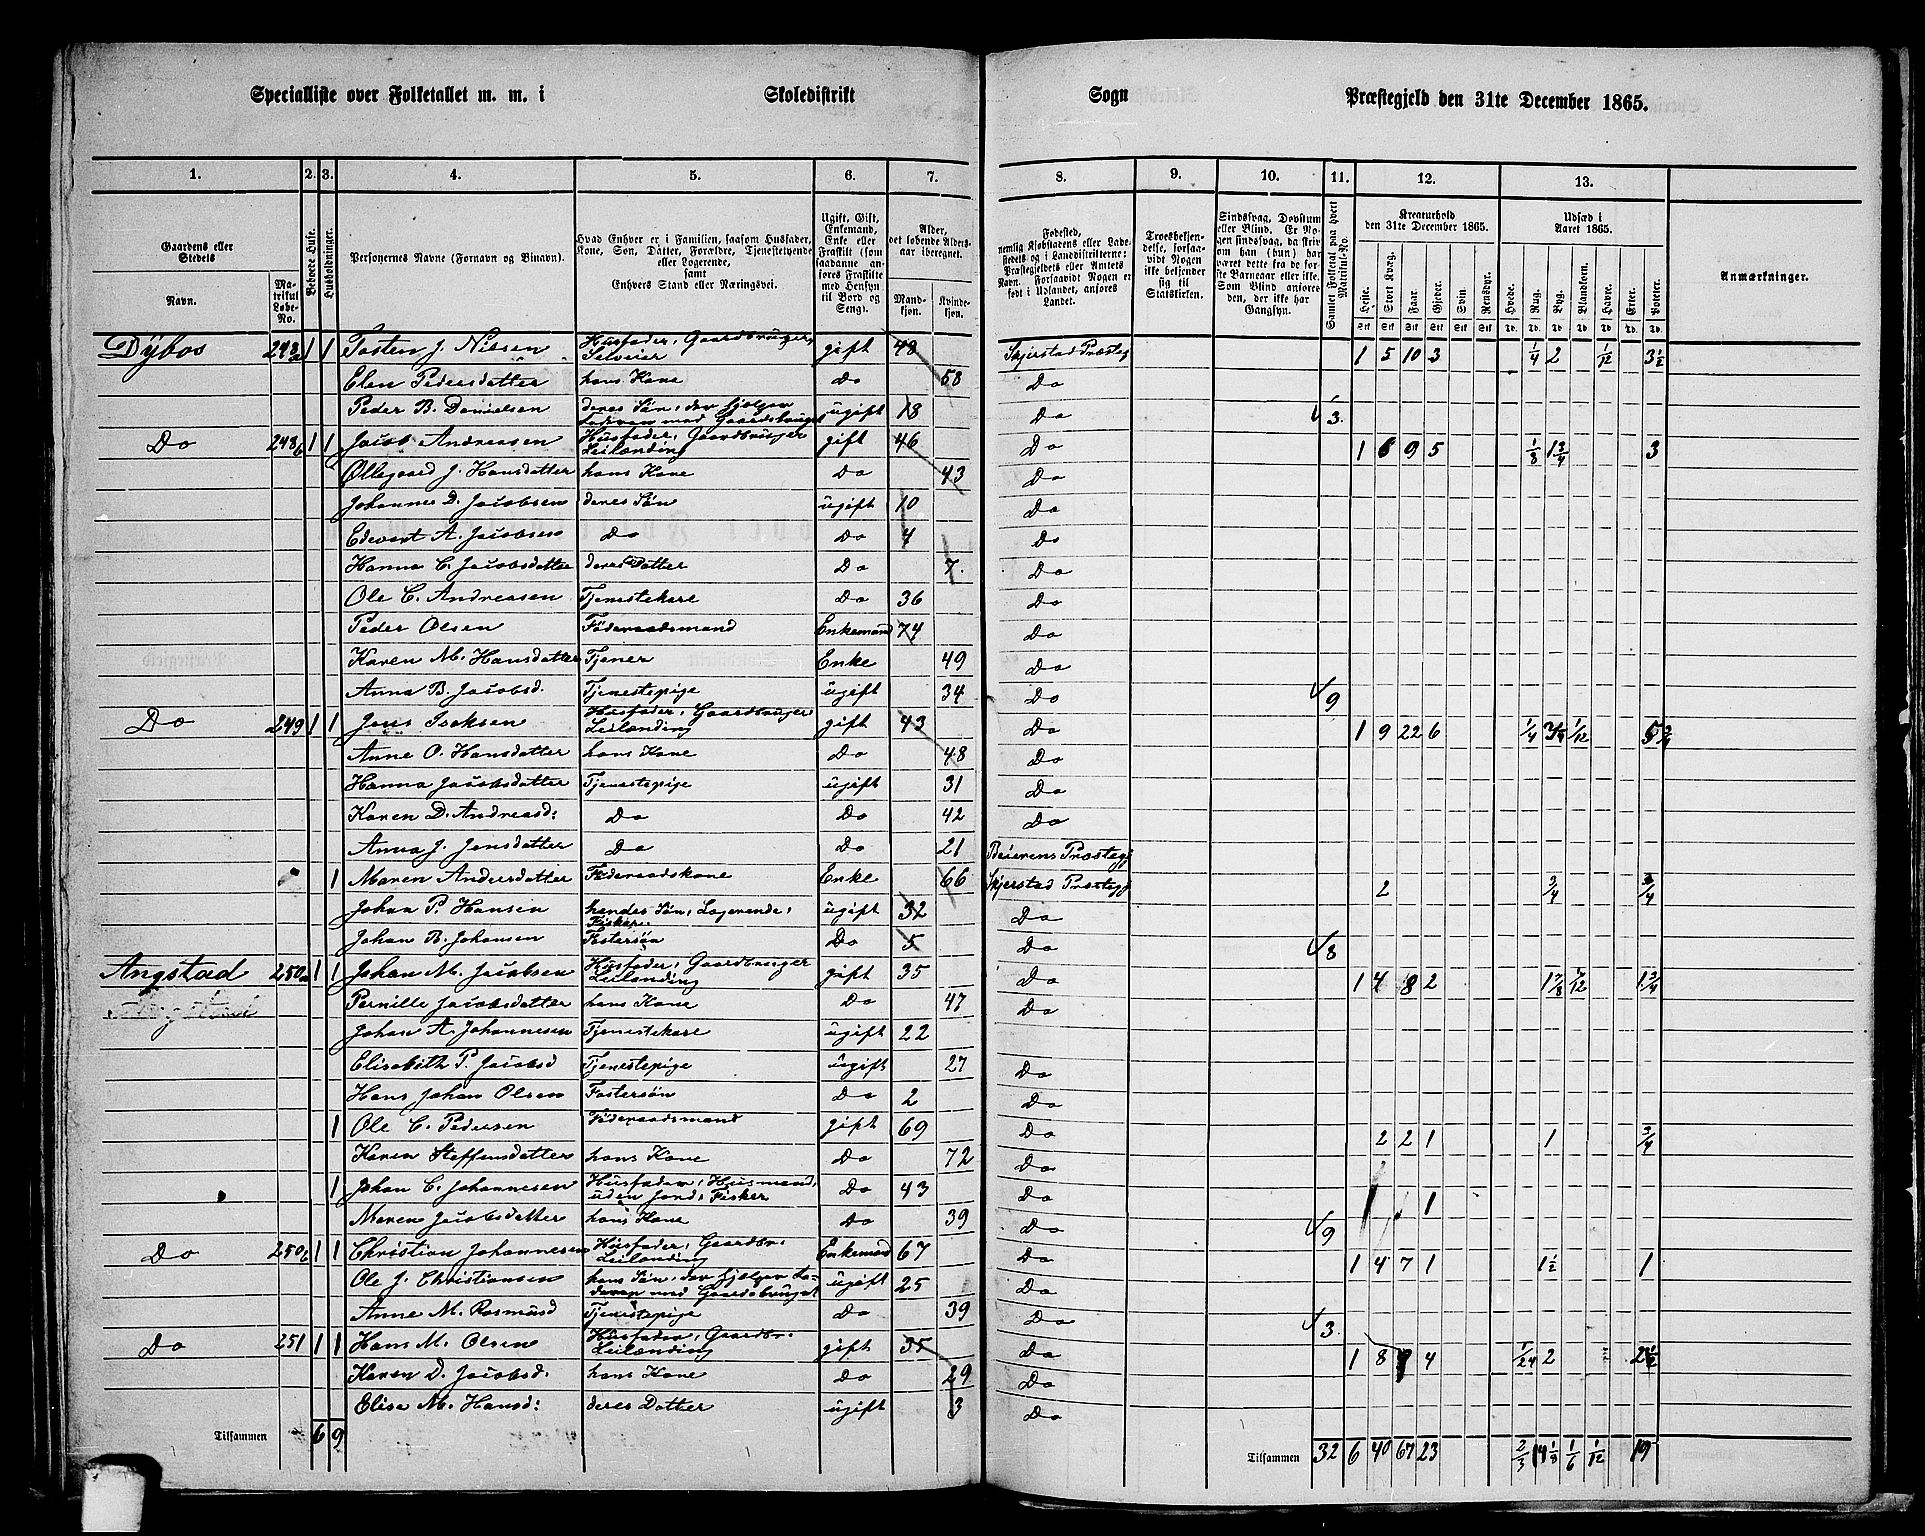 Specialliste over Folketallet m. m. i Skoledistrikt Sogn Præstegjeld den 31te December 1865.
1. 2. 3. 4. 5. 6. 7. 8. 9. 10. 11. 12. 13.
Gaardens eller Stedets
Navn.
Matrikul Løbe-No.
Beboede Huse.
Husholdninger.
Personernes Navne (Fornavn og Binavn).
Hvad Enhver er i Familien, saasom Husfader, Kone, Søn, Datter, Forældre, Tjenestetyende eller Logerende, samt Enhvers Stand eller Næringsvei.
Ugift, Gift, Enkemand, Enke eller Fraskilt (som saadanne anføres Fraskilte med Hensyn til Bord og Seng).
Alder, det løbende Aldersaar iberegnet.
Mandkjøn. Kvindekjøn.
Fødested, nemlig Kjøbstadens eller Ladestedets og i Landdistrikterne: Præstegjeldets eller Amtets Navn. Forsaavidt Nogen er født i Udlandet, anføres Landet.
Troesbekjendelse, forsaavidt Nogen ikke bekjender sig til Statskirken.
Sindssvag, Døvstum eller Blind. Er Nogen sindssvag, da skrives om han (hun) har været dette fra de første Barneaar eller ikke. Som Blind anføres den, der ikke har Gangsyn.
Samlet Folketal paa hvert Matrikul-No.
Kreaturhold den 31te December 1865.
Heste. Stort Kvæg. Faar. Gjeder. Svin. Rensdyr.
Udsæd i Aaret 1865.
Hvede. Rug. Byg. Blandkorn. Havre. Erter. Poteter.
Anmærkninger.
Dybos 248a 1 1 Tosten J. Nilsen Husfader, Gaardbruger, Selveier gift 48 Skjerstad Præsteg 1 5 10 3 1/4 2 1/12 3 1/2
Elen Pedersdatter hans Kone Do 58 Do
Peder B. Danielsen deres Søn, der hjelper Faderen med Gaardsbruget ugift 18 Do 3.
Do 248b 1 1 Jacob Andreasen Husfader, Gaardbruger Leilænding gift 46 Do 1 6 9 5 1/8 1 3/4 3
Ollegaard J. Hansdatter hans Kone Do 43 Do
Johannes D. Jacobsen deres Søn ugift 10 Do
Edevart A. Jacobsen Do Do 4 Do
Hanna C. Jacobsdatter deres Datter Do 7. Do
Ole C. Andreasen Tjenestekare Do 36 Do
Peder Olsen Føderaadsmand Enkemand 74 Do
Karen M. Hansdatter Tjener Enke 49 Do
Anna B. Jacobsd. Tjenestepige ugift 34 Do 9
Do 249 1 1 Jens Isaksen Husfader, Gaardbruger Leilænding gift 43 Do 1 9 22 6 1/4 3/4 1/12 5 3/4
Anne O. Hansdatter hans Kone Do 48 Do
Hanna Jacobsdatter Tjenestepige ugift 31 Do
Karen D. Andreasd: Do Do 42 Do
Anna J. Jensdatter Do Do 21 Beierens Præstegj
1 Maren Andersdatter Føderaadskone Enke 66 Skjerstad Præstegj 2 3/4 3/4
Johan P. Hansen hendes Søn, Logerende, Fisker. ugift 32 Do
Johan B. Johansen Fostersøn Do 5 Do 8
Angstad 250a 1 1 Johan M. Jacobsen Husfader, Gaardbruger Leilænding gift 35 Do 1 4 8 2 1 7/8 7/12 1 3/4
Pernille Jacobsdatter hans Kone Do 47 Do
Johan A. Johannesen Tjenestekare ugift 22
Elisabeth P. Jacobsd Tjenestepige ugift 27 Do
Hans Johan Olsen Fostersøn Do 2 Do
1 Ole C. Pedersen Føderaadsmand gift 69 Do 2 2 1 1 3/4
Karen Steffensdatter hans Kone Do 72 Do
1 Johan C. Johannesen Husfader, Husmand, uden Jord, Fisker Do 43 Do 1 1
Maren Jacobsdatter hans Kone Do 39 Do 9
Do 250b 1 1 Christian Johannesen Husfader, Gaardbr. Leilænding Enkemand 67 Do 1 4 7 1 1 1/2 1
Ole J. Christiansen hans Søn, der hjelper Faderen med Gaardsbruget ugift 25 Do
Anne M. Rasmusd Tjenestepige Do 39 Do 3.
Do 251 1 1 Hans M. Olsen Husfader, Gaardbr. Leilænding gift 35 Do 1 8 9 4 1/24 2 2 1/2
Karen D. Jacobsd. hans Kone Do 29 Do
Elisa M. Hansd: deres Datter ugift 3 Do
Tilsammen 6 9 Tilsammen 32 6 40 67 23 2/3 14 1/8 1/6 1/12 19